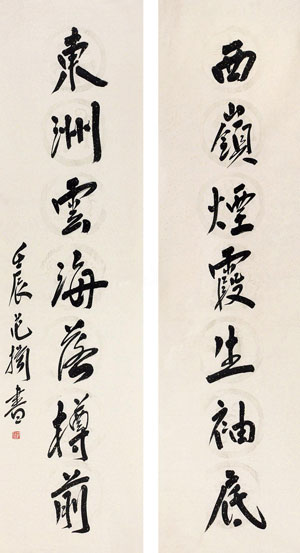 西嶺煙霞生袖底
東洲雲海落樽前
壬辰范扬書